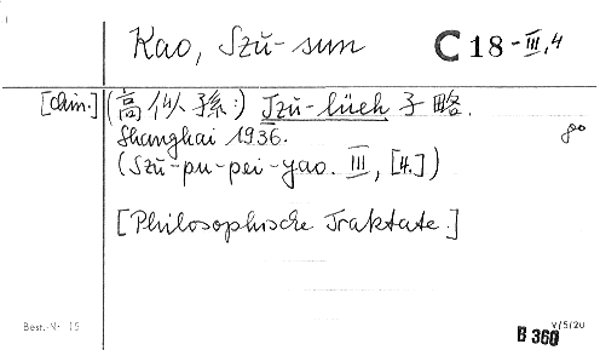 Kao, Szŭ-sun C 18-III,4
[chin.] (高似孫:) Tzŭ-lüeh 子略.
Shanghai 1936. 8°
(Szŭ-pu-pei-yao. III, [4.])
[Philosophische Traktate.]
Best.-Nr. 15 V/5/20
B 360